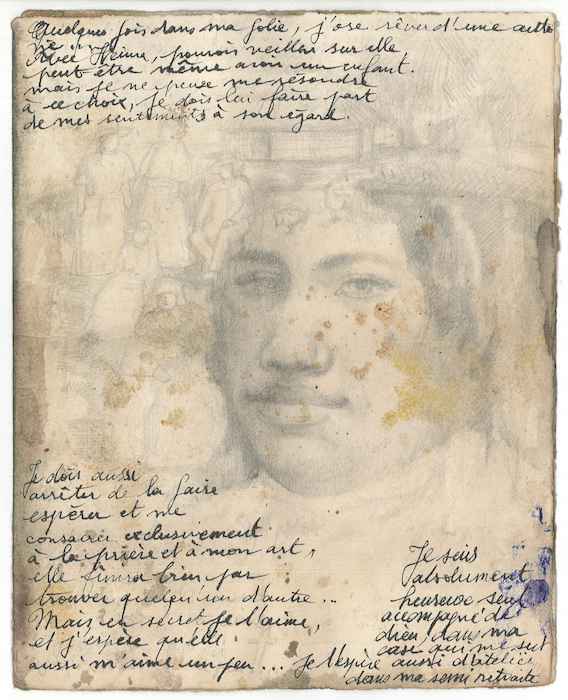 Quelques fois dans ma folie, j'ose rêver d'une autre
vie...
Avec Heinre, pouvoir veiller sur elle
peut être même avoir un enfant.
mais je ne peux me résoudre
à ce choix, je dois lui faire part
de mes sentiments à son égard.
Je dois aussi
arrêter de la faire
espérer et me
consacrer exclusivement
à la prière et à mon art,
elle finira bien par
trouver quelqu'un d'autre...
Mais en secret je l'aime,
et j'espère qu'elle
aussi m'aime un peu... Je l'espère aussi
Je suis
absolument
heureux seul
accompagné de
dieu, dans ma
case qui me sert
d'atelier
dans ma semi retraite